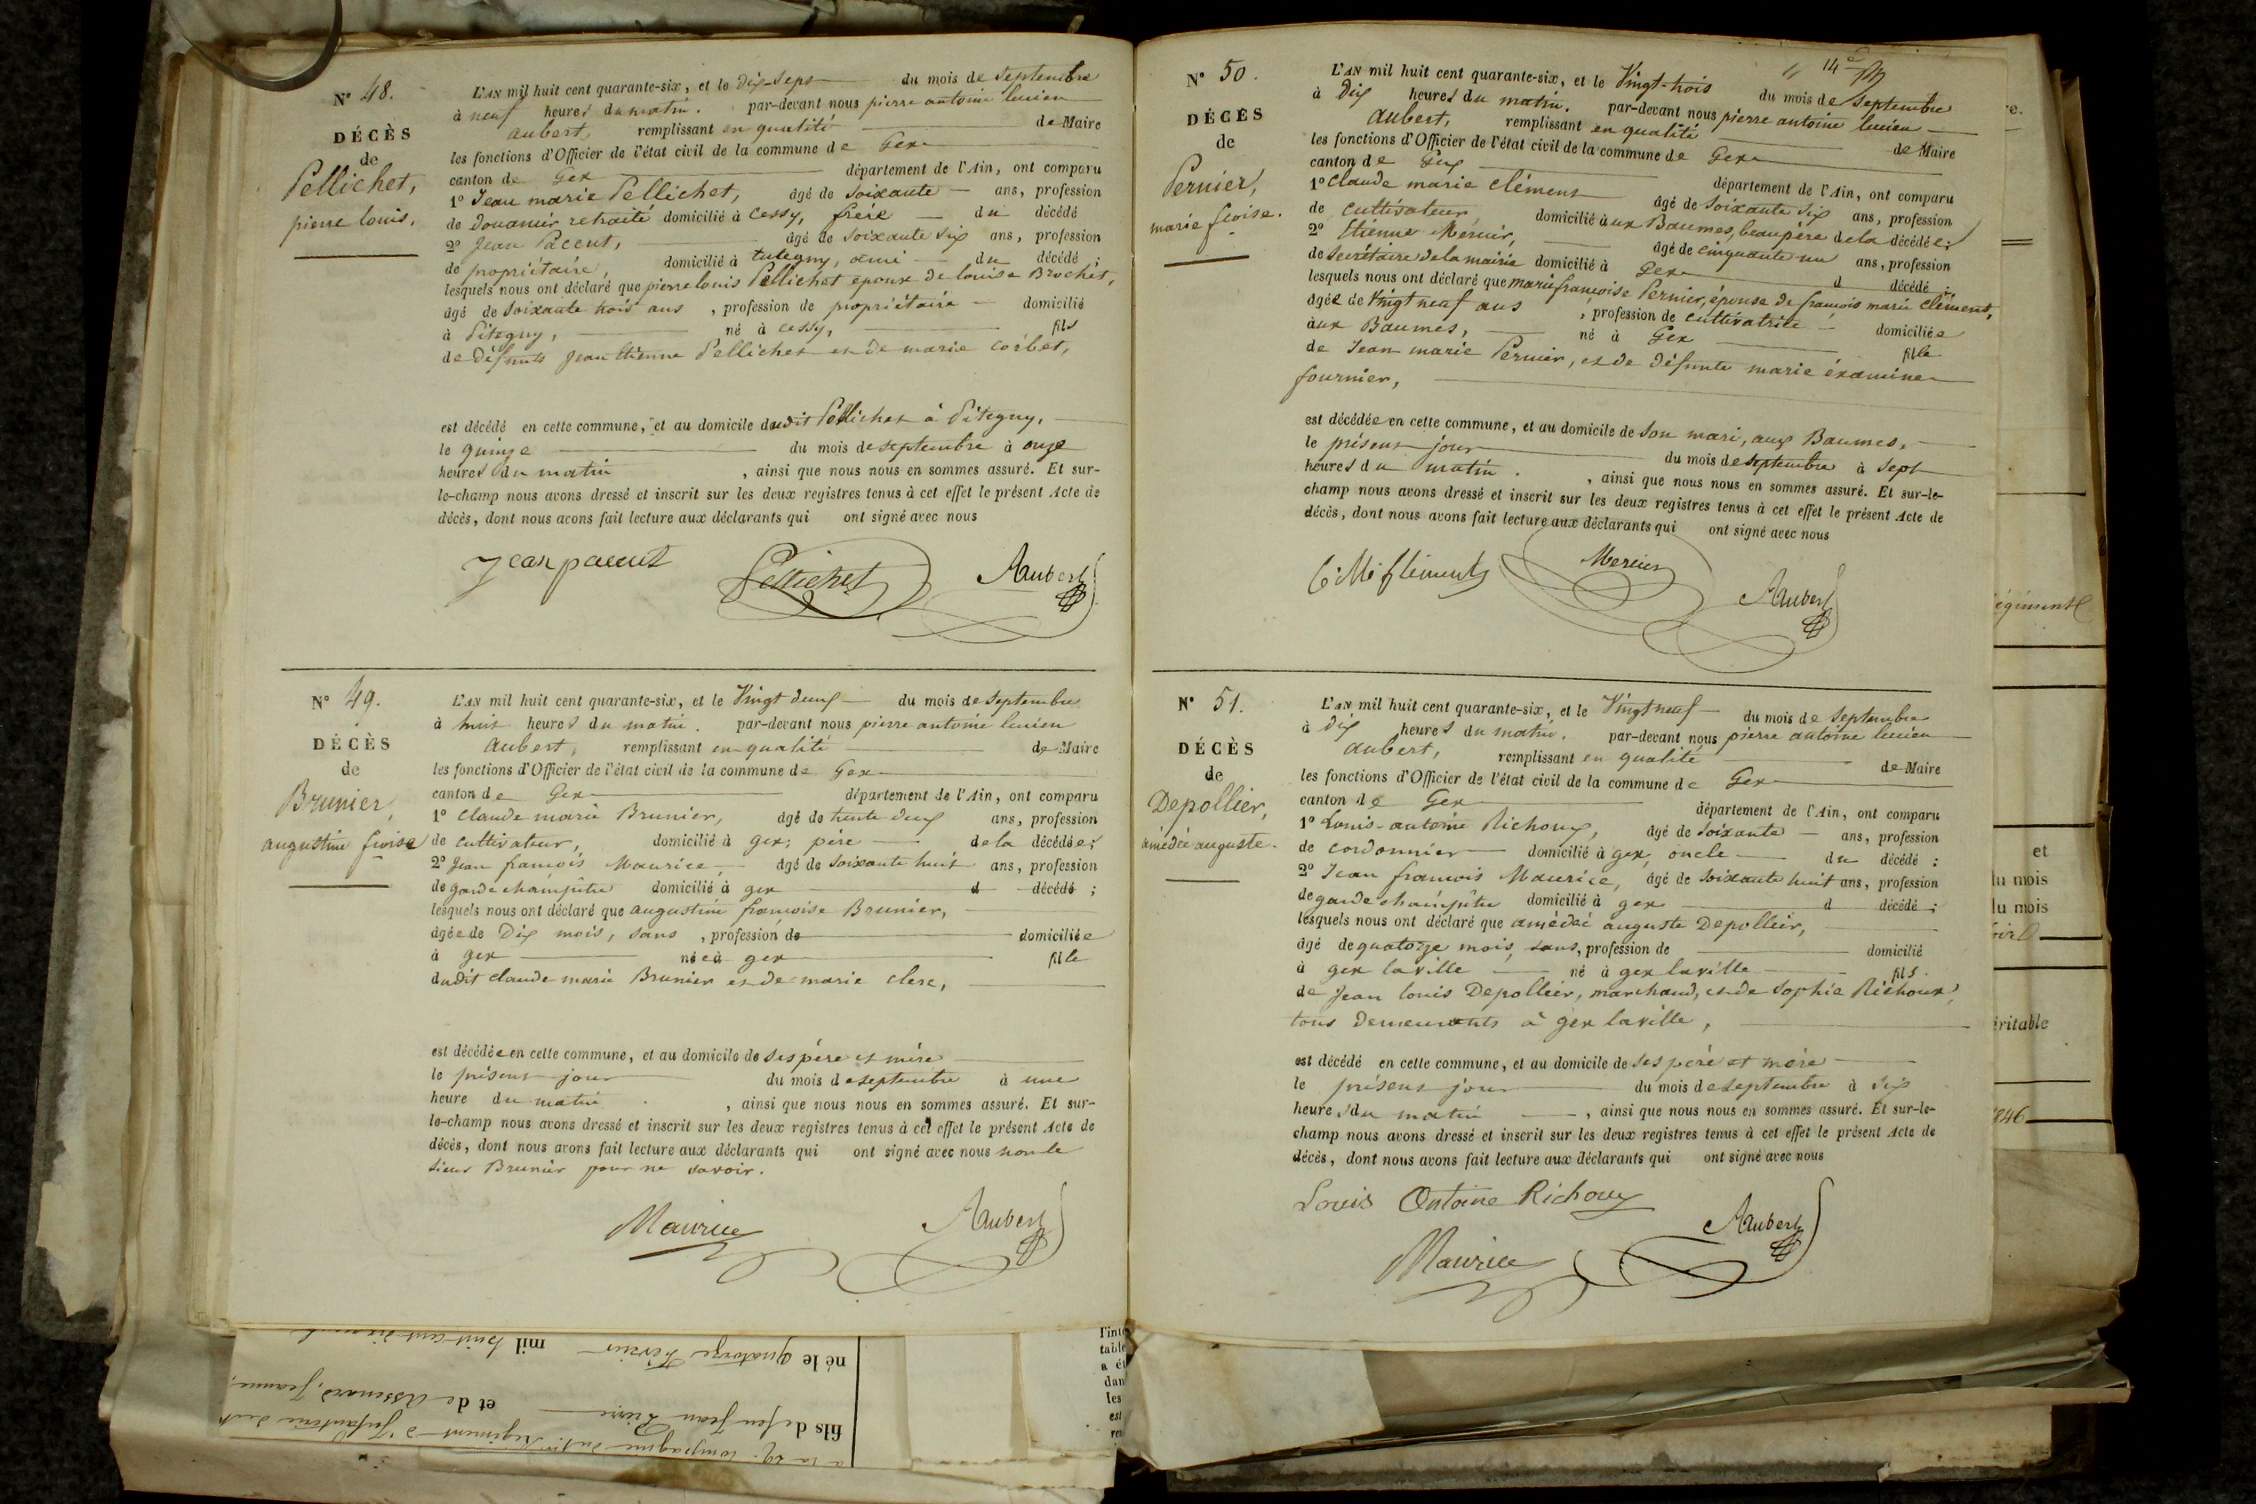 N° 48.
DÉCÈS
de
Pellichet,
pierre louis.
L'AN mil huit cent quarante-six, et le dix-sept du mois de septembre
à neuf heures du matin. par-devant nous pierre antoine lucien
aubert, remplissant en qualité de Maire
les fonctions d'Officier de l'état civil de la commune de Gex
canton de Gex département de l'Ain, ont comparu
1° Jean marie Pellichet, âgé de soixante ans, profession
de douanier retraité domicilié à Cessy, frère du décédé
2° Jean Pacent, âgé de soixante six ans, profession
de propriétaire, domicilié à tutegny, ami du décédé ;
lesquels nous ont déclaré que pierre louis Pellichet epoux de louise Brochet,
âgé de soixante trois ans , profession de propriétaire domicilié
à Pitegny, né à cessy, fils
de défunts Jean Etienne Pellichet et de marie corbet,
est décédé en cette commune, et au domicile dudit Pellichet à Pitegny,
le quinze du mois de septembre à onze
heures du matin , ainsi que nous nous en sommes assuré. Et sur-
le-champ nous avons dressé et inscrit sur les deux registres tenus à cet effet le présent Acte de
décès, dont nous avons fait lecture aux déclarants qui ont signé avec nous
Jean pacent Pellichet Aubert
N° 49.
DÉCÈS
de
Brunier,
augustine froise
L'AN mil huit cent quarante-six, et le Vingt deux du mois de septembre
à huit heures du matin. par-devant nous pierre antoine lucien
aubert, remplissant en qualité de Maire
les fonctions d'Officier de l'état civil de la commune de Gex
canton de Gex département de l'Ain, ont comparu
1° Claude marie Brunier, âgé de trente deux ans, profession
de cultivateur, domicilié à gex, père de la décédée ;
2° Jean françois Maurice, âgé de soixante huit ans, profession
de garde champêtre domicilié à gex d décédé ;
lesquels nous ont déclaré que augustine françoise Brunier,
âgée de Dix mois, sans , profession de domiciliée
à gex née à gex fille
dudit claude marie Brunier et de marie clerc,
est décédée en cette commune, et au domicile de ses père et mère
le présent jour du mois de septembre à une
heure du matin , ainsi que nous nous en sommes assuré. Et sur-
le-champ nous avons dressé et inscrit sur les deux registres tenus à cet effet le présent Acte de
décès, dont nous avons fait lecture aux déclarants qui ont signé avec nous non le
sieur Brunier pour ne savoir.
Maurice Aubert
N° 50.
DÉCÈS
de
Pernier,
marie froise.
L'AN mil huit cent quarante-six, et le Vingt-trois du mois de septembre
à dix heures du matin. par-devant nous pierre antoine lucien
aubert, remplissant en qualité de Maire
les fonctions d'Officier de l'état civil de la commune de Gex
canton de Gex département de l'Ain, ont comparu
1° Claude marie clément âgé de soixante six ans, profession
de cultivateur, domicilié aux Baumes, beaupère de la décédée ;
2° Etienne Mercier, âgé de cinquante un ans, profession
de secrétaire de la mairie domicilié à Gex d décédé ;
lesquels nous ont déclaré que marie françoise Pernier, épouse de françois marie clément,
âgée de Vingt neuf ans , profession de cultivatrice domiciliée
aux Baumes, né à Gex fille
de Jean marie Pernier, et de défunte marie éxamine
fournier,
est décédée en cette commune, et au domicile de son mari, aux Baumes,
le présent jour du mois de septembre à sept
heures du matin , ainsi que nous nous en sommes assuré. Et sur-le-
champ nous avons dressé et inscrit sur les deux registres tenus à cet effet le présent Acte de
décès, dont nous avons fait lecture aux déclarants qui ont signé avec nous
C. M. Clément Mercier Aubert
N° 51.
DÉCÈS
de
Depollier,
amédée auguste.
L'AN mil huit cent quarante-six, et le Vingt neuf du mois de septembre
à dix heures du matin. par-devant nous pierre antoine lucien
aubert, remplissant en qualité de Maire
les fonctions d'Officier de l'état civil de la commune de Gex
canton de Gex département de l'Ain, ont comparu
1° Louis-antoine Richoux, âgé de soixante ans, profession
de cordonnier domicilié à gex, oncle du décédé ;
2° Jean francois Maurice, âgé de soixante huit ans, profession
de garde champêtre domicilié à gex d décédé ;
lesquels nous ont déclaré que amédée auguste Depollier,
âgé de quatorze mois, sans, profession de domicilié
à gex la ville né à gex la ville fils
de Jean louis Depollier, marchand, et de Sophie Richoux,
tous demeurants à gex la ville,
est décédé en cette commune, et au domicile de ses père et mère
le présent jour du mois de septembre à six
heures du matin , ainsi que nous nous en sommes assuré. Et sur-le-
champ nous avons dressé et inscrit sur les deux registres tenus à cet effet le présent Acte de
décès, dont nous avons fait lecture aux déclarants qui ont signé avec nous
Louis Antoine Richoux
Maurice Aubert